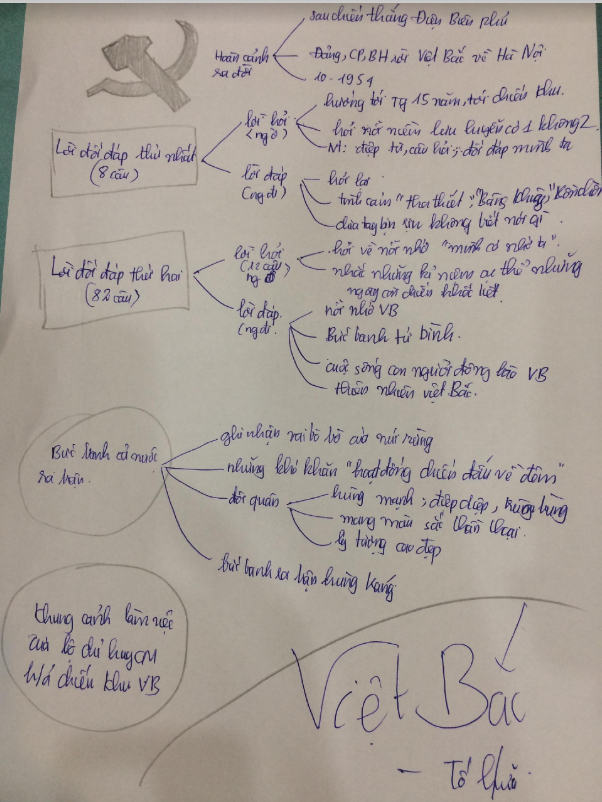 Hoàn cảnh
ra đời
sau chiến thắng Điện Biên phủ
Đảng, CP, BH rời Việt Bắc về Hà Nội
10-1954
Lời đối đáp thứ nhất
(8 câu)
lời hỏi
(ng ở)
hướng tới Tg 15 năm, tới chiến khu.
hỏi nỗi niềm lưu luyến có 1 không 2
NT: điệp từ, câu hỏi, đối đáp mình ta
lời đáp
(ng đi)
hỏi lại
tình cảm "tha thiết", "Bâng khuâng", "Bồn chồn
cầm tay khôn biết nói gì.
Lời đối đáp thứ hai
(82 câu)
lời hỏi
(12 câu
ng ở)
hỏi về nỗi nhớ "mình có nhớ ta".
nhắc những kỉ niệm cụ thể những
ngày chiến khốc liệt
lời đáp
(ng đi.
nỗi nhớ VB
Bức tranh tứ bình.
cuộc sống con người đồng bào VB
thiên nhiên việt Bắc.
Bức tranh cả nước
ra trận.
ghi nhận vai trò to của núi rừng
những khó khăn "hoạt động chiến đấu về đêm"
đội quân
hùng mạnh, điệp điệp, trùng trùng
mang màu sắc thần thoại.
lý tưởng cao đẹp
bức tranh ra trận hùng tráng
khung cảnh làm việc
của bộ chỉ huy CM
ở chiến khu VB
Việt Bắc
- Tố Hữu